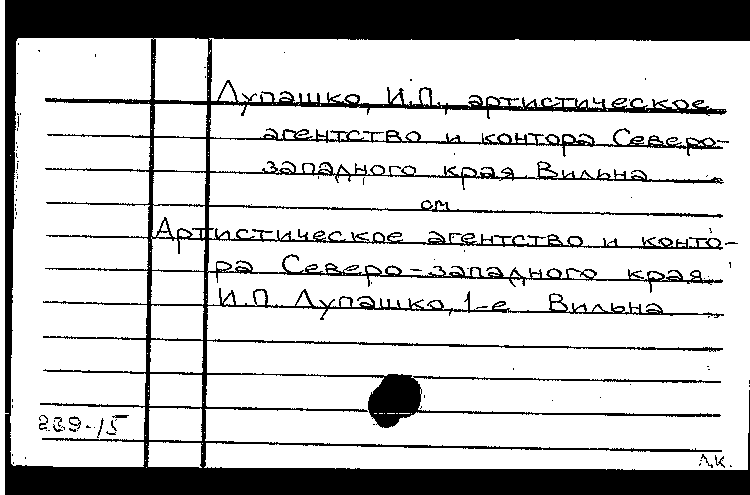 Лупашко, И.П., артистическое
агентство и контора Северо-
западного края Вильна
см
Артистическое агентство и конто-
ра Северо-западного края
И.П. Лупашко, 1-е Вильна
239-15
Л.К.